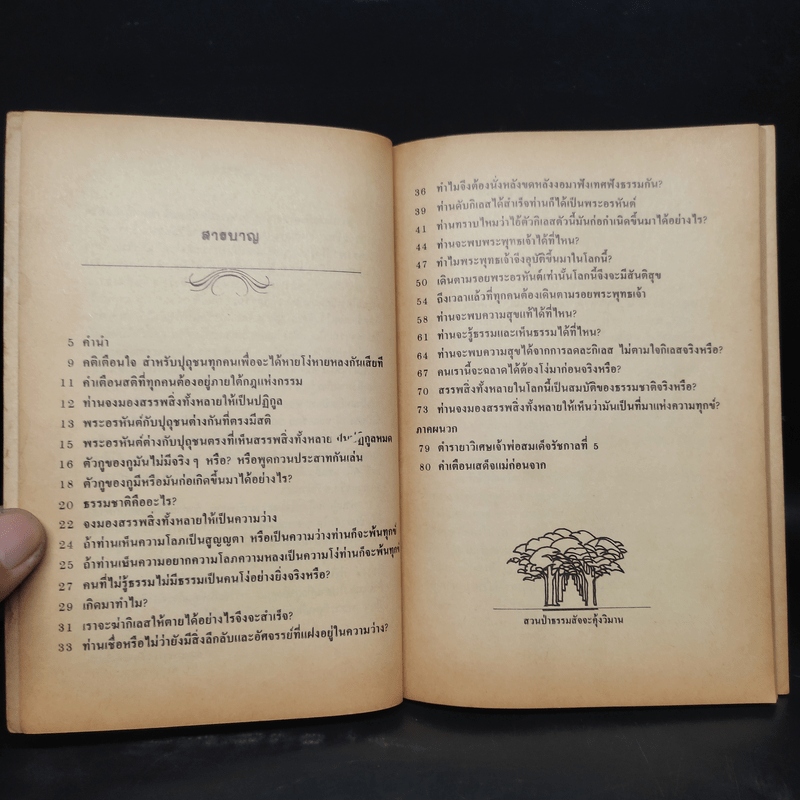 สารบาญ
5 คำนำ
9 คติเตือนใจ สำหรับปุถุชนทุกคนเพื่อจะได้หายโง่หายหลงกันเสียที
11 คำเตือนสติที่ทุกคนต้องอยู่ภายใต้กฎแห่งกรรม
12 ท่านจงมองสรรพสิ่งทั้งหลายให้เป็นปฏิกูล
13 พระอรหันต์กับปุถุชนต่างกันที่ตรงมีสติ
15 พระอรหันต์ต่างกับปุถุชนตรงที่เห็นสรรพสิ่งทั้งหลาย ปฏิกูลหมด
16 ตัวกูของกูมันไม่มีจริง ๆ หรือ? หรือพูดกวนประสาทกันเล่น
18 ตัวกูของกูมีหรือมันก่อเกิดขึ้นมาได้อย่างไร?
20 ธรรมชาติคืออะไร?
22 จงมองสรรพสิ่งทั้งหลายให้เป็นความว่าง
24 ถ้าท่านเห็นความโลภเป็นสูญญตา หรือเป็นความว่างท่านก็จะพ้นทุกข์
25 ถ้าท่านเน็นความอยากความโลภความหลงเป็นความโง่ท่านก็จะพ้นทุกข์
27 คนที่ไม่รู้ธรรมไม่มีธรรมเป็นคนโง่อย่างยิ่งจริงหรือ?
29 เกิดมาทำไม?
31 เราจะฆ่ากิเลสให้ตายได้อย่างไรจึงจะสำเร็จ?
33 ท่านเชื่อหรือไม่ว่ายังมีสิ่งลึกลับและอัศจรรย์ที่แฝงอยู่ในความว่าง?
36 ทำไมจึงต้องนั่งหลังขดหลังงอมาฟังเทศฟังธรรมกัน?
39 ท่านดับกิเลสได้สำเร็จท่านก็ได้เป็นพระอรหันต์
41 ท่านทราบไหมว่าไอ้ตัวกิเลสตัวนี้มันก่อกำเนิดขึ้นมาได้อย่างไร?
44 ท่านจะพบพระพุทธเจ้าได้ที่ไหน?
47 ทำไมพระพุทธเจ้าจึงอุบัติขึ้นมาในโลกนี้?
50 เดินตามรอยพระอรหันต์เท่านั้นโลกนี้จึงจะมีสันติสุข
54 ถึงเวลาแล้วที่ทุกคนต้องเดินตามรอยพระพุทธเจ้า
58 ท่านจะพบความสุขแท้ได้ที่ไหน?
61 ท่านจะรู้ธรรมและเห็นธรรมได้ที่ไหน?
64 ท่านจะพบความสุขได้จากการลดละกิเลส ไม่ตามใจกิเลสจริงหรือ?
67 คนเรานี้จะฉลาดได้ต้องโง่มาก่อนจริงหรือ?
70 สรรพสิ่งทั้งหลายในโลกนี้เป็นสมบัติของธรรมชาติจริงหรือ?
73 ท่านจงมองสรรพสิ่งทั้งหลายให้เห็นว่ามันเป็นที่มาแห่งความทุกข์?
ภาคผนวก
79 ตำรายาวิเศษเจ้าพ่อสมเด็จรัชกาลที่ 5
80 คำเตือนเสด็จแม่ก่อนจาก
สวนป่าธรรมสัจจะคุ้งวิมาน